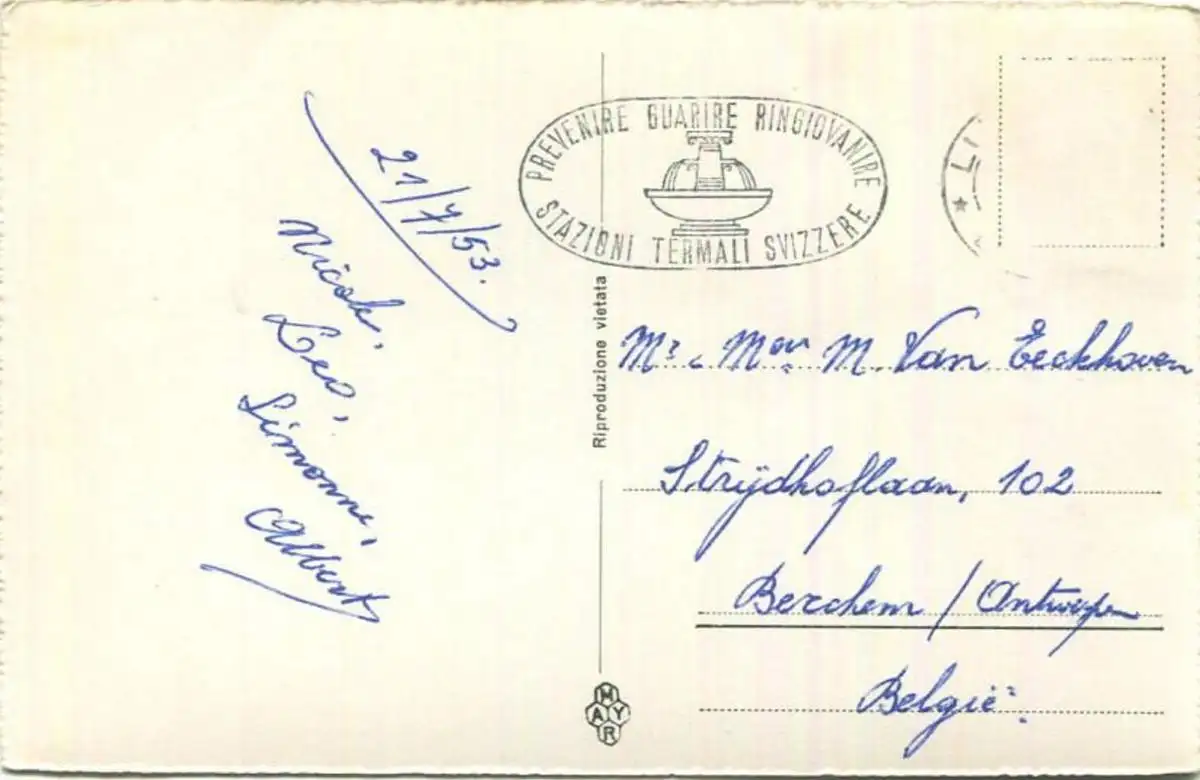 21/7/53.
Nicole,
Leo,
Simonne,
Albert
PREVENIRE GUARIRE RINGIOVANIRE
STAZIONI TERMALI SVIZZERE
Riproduzione vietata
Mr. Mevr M. Van Eeckhoven
Strijdhoflaan, 102
Berchem / Antwerpen
België
MAYR